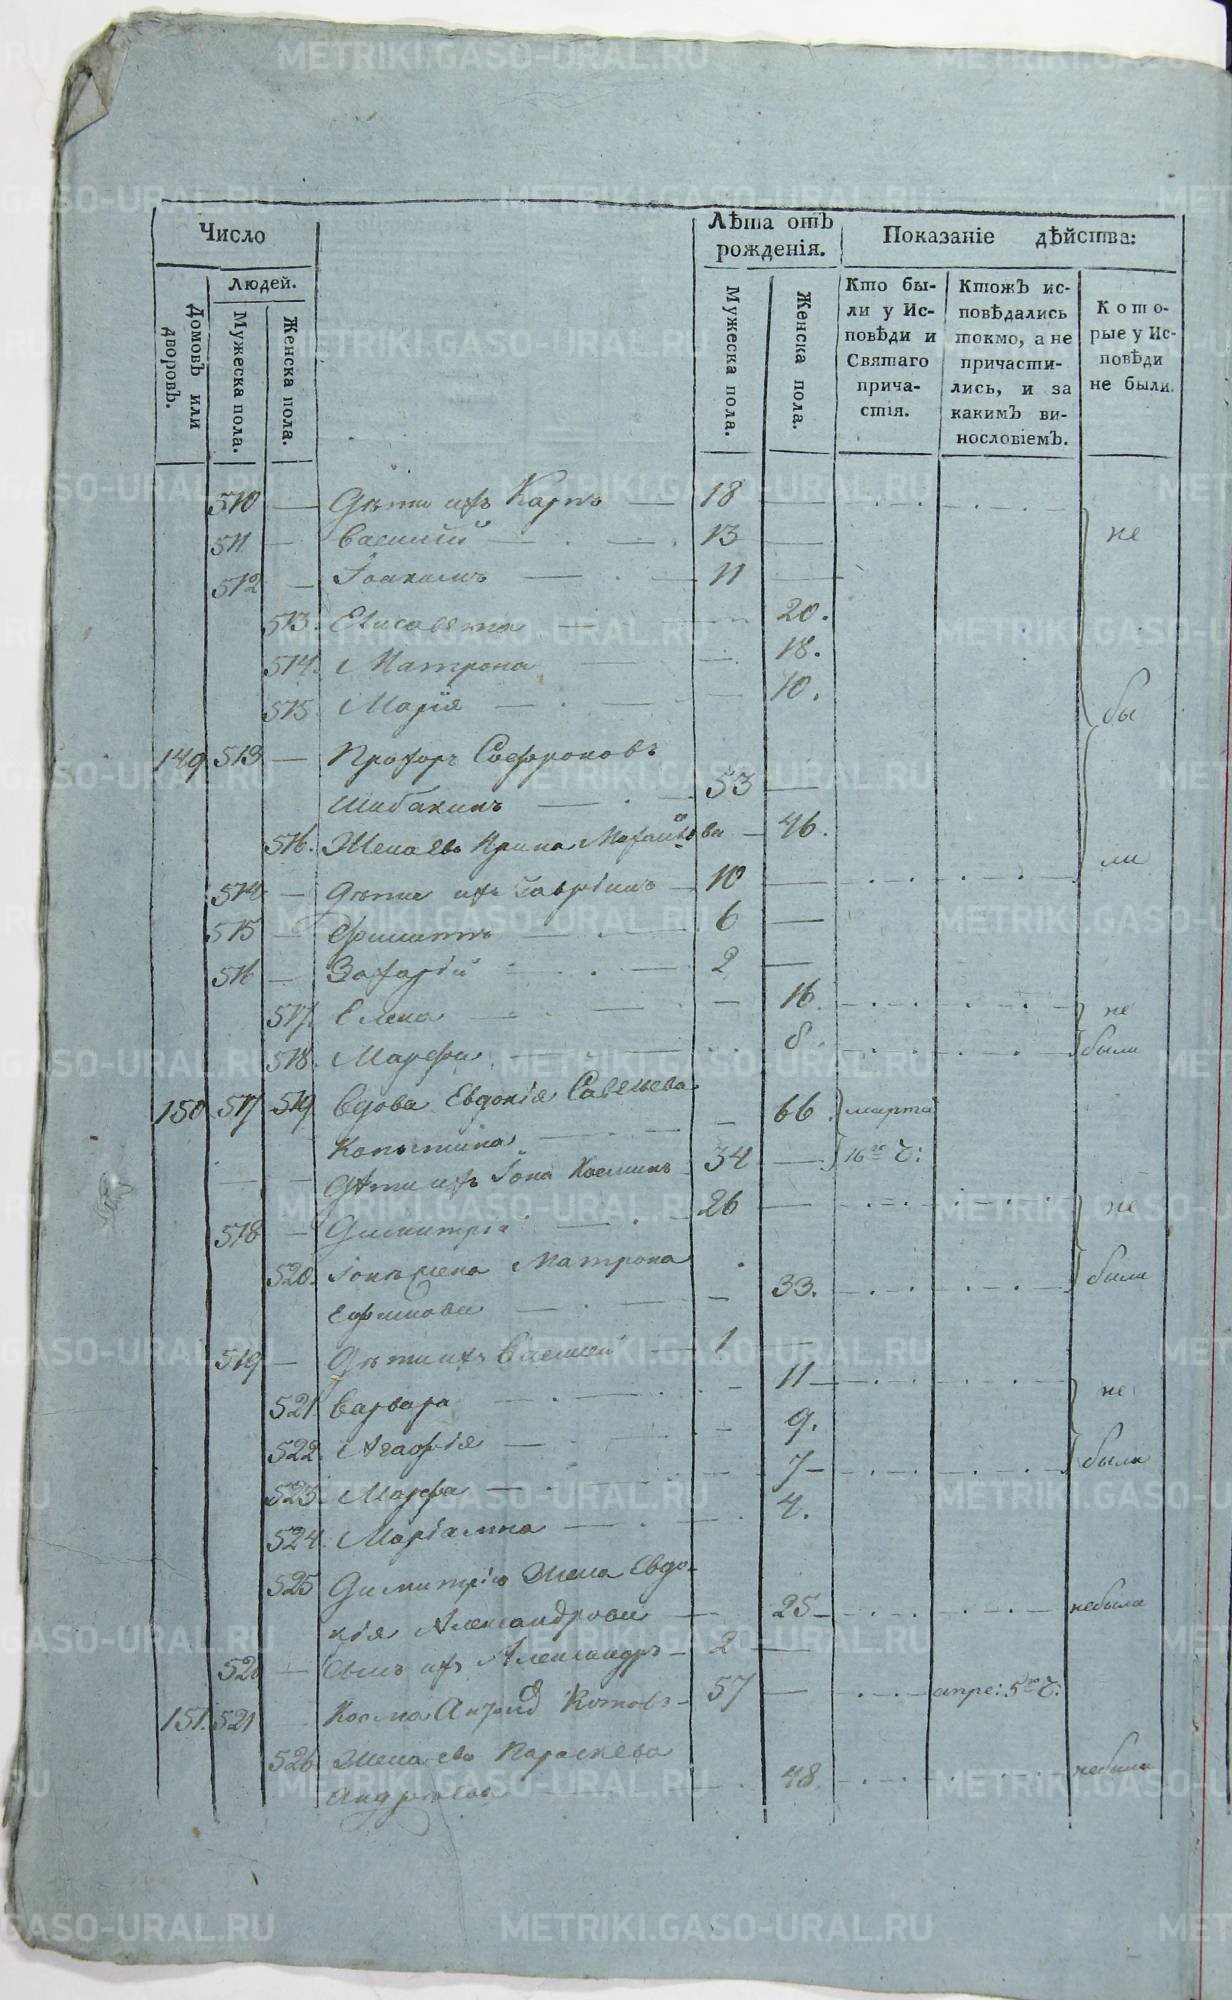 Число
Лѣта отъ рожденія.
Показаніе дѣйства:
Людей.
Домовъ или дворовъ.
Мужеска пола.
Женска пола.
Мужеска пола.
Женска пола.
Кто бы-
ли у Ис-
повѣди и
Святаго
прича-
стія.
Ктожъ ис-
повѣдались
токмо, а не
причасти-
лись, и за
какимъ ви-
нословіемъ.
Кото-
рые у Ис-
повѣди
не были.
510 — Дѣти ихъ Карпъ — 18 —
511 — Василій — 13 — не
512 — Іоакимъ — 11 —
513. Елисавета — 20.
514. Матрона — 18.
515. Марія — 10. бы
149 513 — Прохоръ Софроновъ
Шибакинъ — 53 —
516. Жена его Ирина — 46.
514 — Дѣти ихъ Гавріилъ — 10 — ли
515 — Филиппъ — 6 —
516 — Захарій — 2 —
517. Елена — 16. не
518. Марфа — 8. были
150 517 519 Вдова Евдокія Савельева
Копытина — 66. марта
Дѣти ихъ Іона Космин — 34 — 16го ч:
518 — Димитрій — 26 — не
520. Іоны жена Матрона
Ефимова — 33. были
519 — Дѣти ихъ Василій — 1 —
521 Варвара — 11 — не
522. Агафія — 9.
523. Марфа — 7 — были
524. Маріамна — 4.
525 Димитрія жена Евдо-
кія Александрова — 25 — небыла
520 — Сынъ ихъ Александръ — 2 —
151. 521 Косма Котовъ — 57 — апре: 5го ч:
526 Жена его Параскева
Андреева — 48. небыла
METRIKI.GASO-URAL.RU